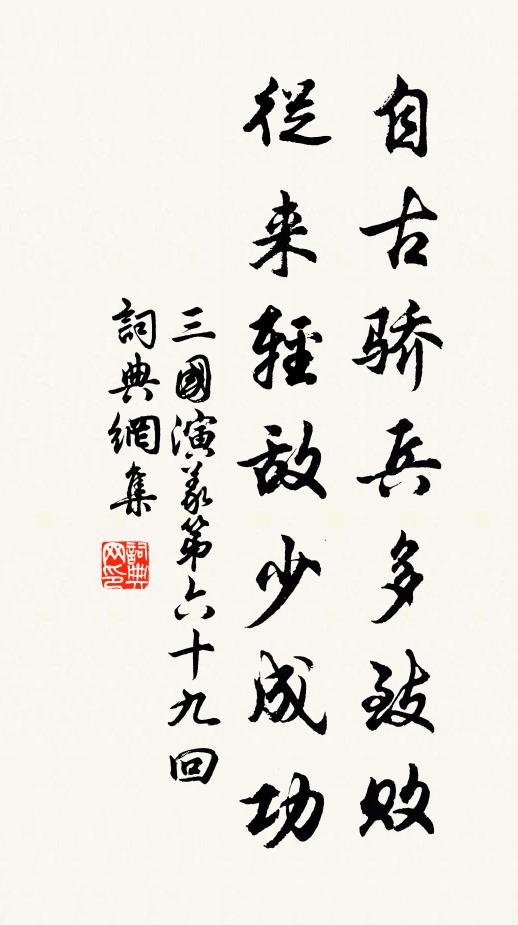 自古骄兵多致敗
從来輕敌少成功
三國演義第六十九回
詞典網集
詞典网印